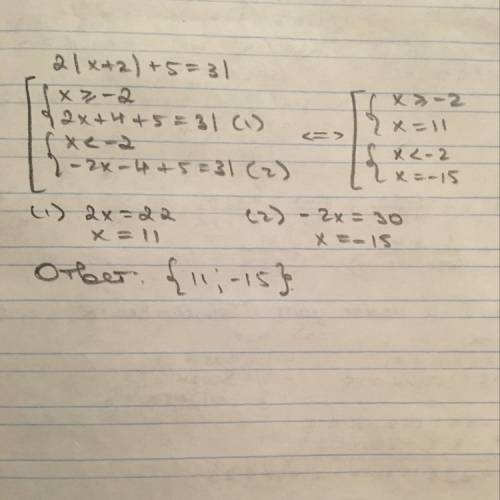 2|x+2|+5=31
[ { x ≥ -2
2x+4+5=31 (1)
{ x < -2
-2x-4+5=31 (2)
<=> [ { x ≥ -2
x = 11
{ x < -2
x = -15
(1) 2x = 22
x = 11
(2) -2x = 30
x = -15
Ответ: {11; -15}.